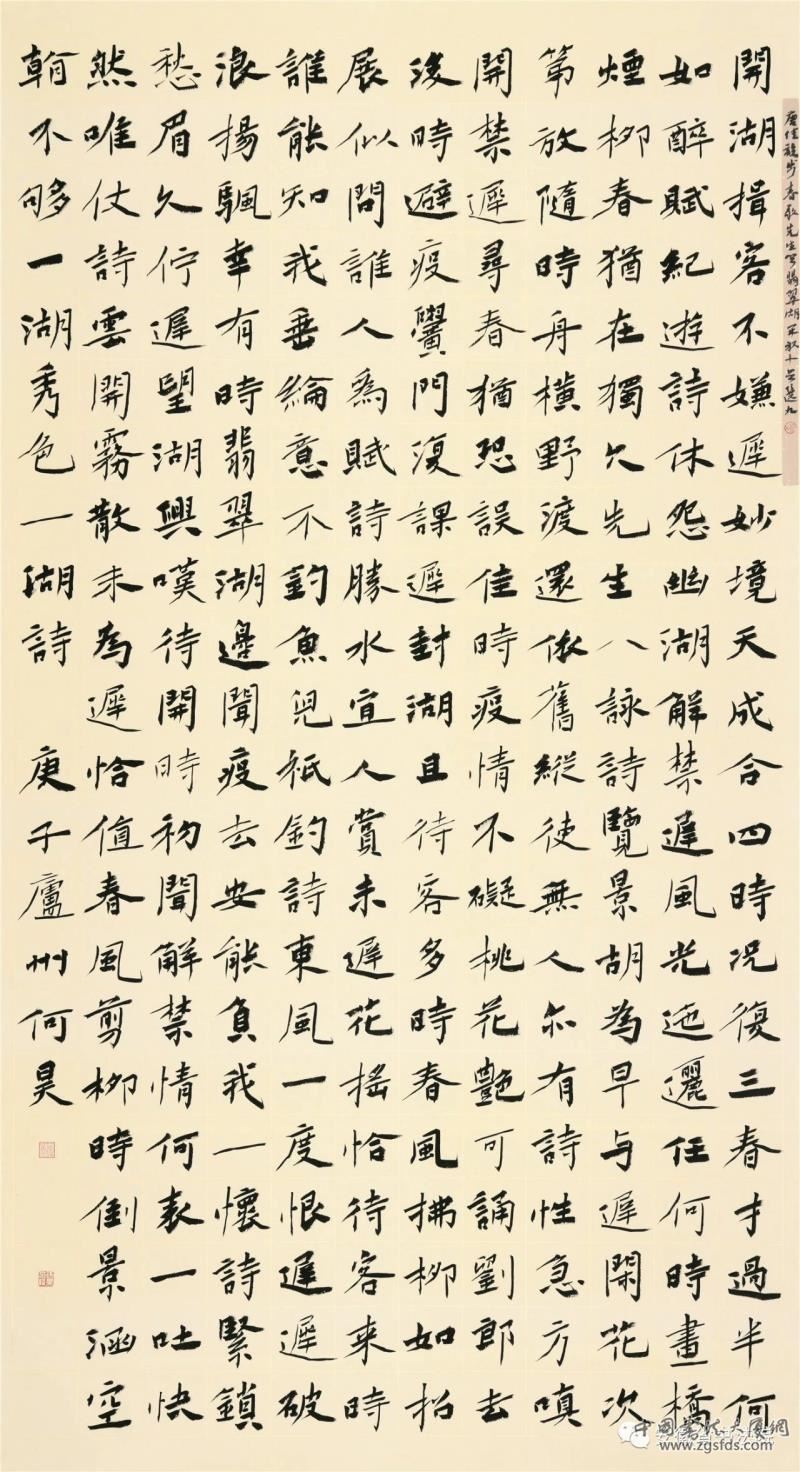 開湖揖客不嫌遲妙境天成合四時況復三春才過半何
如醉賦紀遊詩休怨幽湖解禁遲風光迤邐任何時畫橋
煙柳春猶在獨欠先生八詠詩覽景胡為早与遲閑花次
第放隨時舟橫野渡還依舊縱使無人尒有詩性急方嗔
開禁遲尋春猶恐誤佳時疫情不礙桃花艷可誦劉郎去
後時避疫黌門復課遲封湖且待客多時春風拂柳如招
展似問誰人為賦詩勝水宜人賞未遲花搖恰待客来時
誰能知我垂綸意不釣魚兒祇釣詩東風一度恨遲遲破
浪揚颿幸有時翡翠湖邊聞疫去安能負我一懷詩緊鎖
愁眉久佇遲望湖興嘆待開時初聞解禁情何表一吐快
然唯仗詩雲開霧散未為遲恰值春風剪柳時倒景涵空
翰不够一湖秀色一湖詩 庚子廬州何昊
唐佳龍步春秋先生寫翡翠湖
www.zgsfds.com